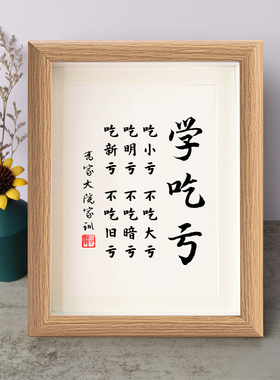 学吃亏
吃小亏 不吃大亏
吃明亏 不吃暗亏
吃新亏 不吃旧亏
喬家大院家训